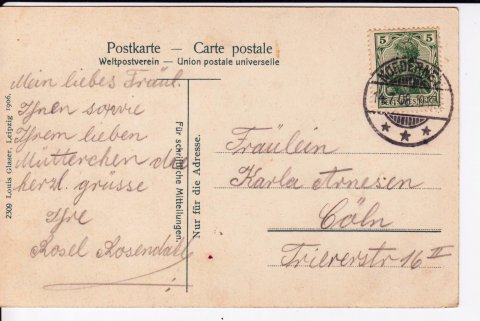 Postkarte — Carte postale
Weltpostverein — Union postale universelle
5 5
NORDERNEY
Mein liebes Fräul.
Ihnen sowie
Ihrem lieben
Mütterchen die
herzl. grüsse
Ihre
Rosel Rosendahl
2309 Louis Glaser, Leipzig 1906.
Für schriftliche Mitteilungen.
Nur für die Adresse.
Fräulein
Karla Arnesen
Cöln
Triererstr 16 II